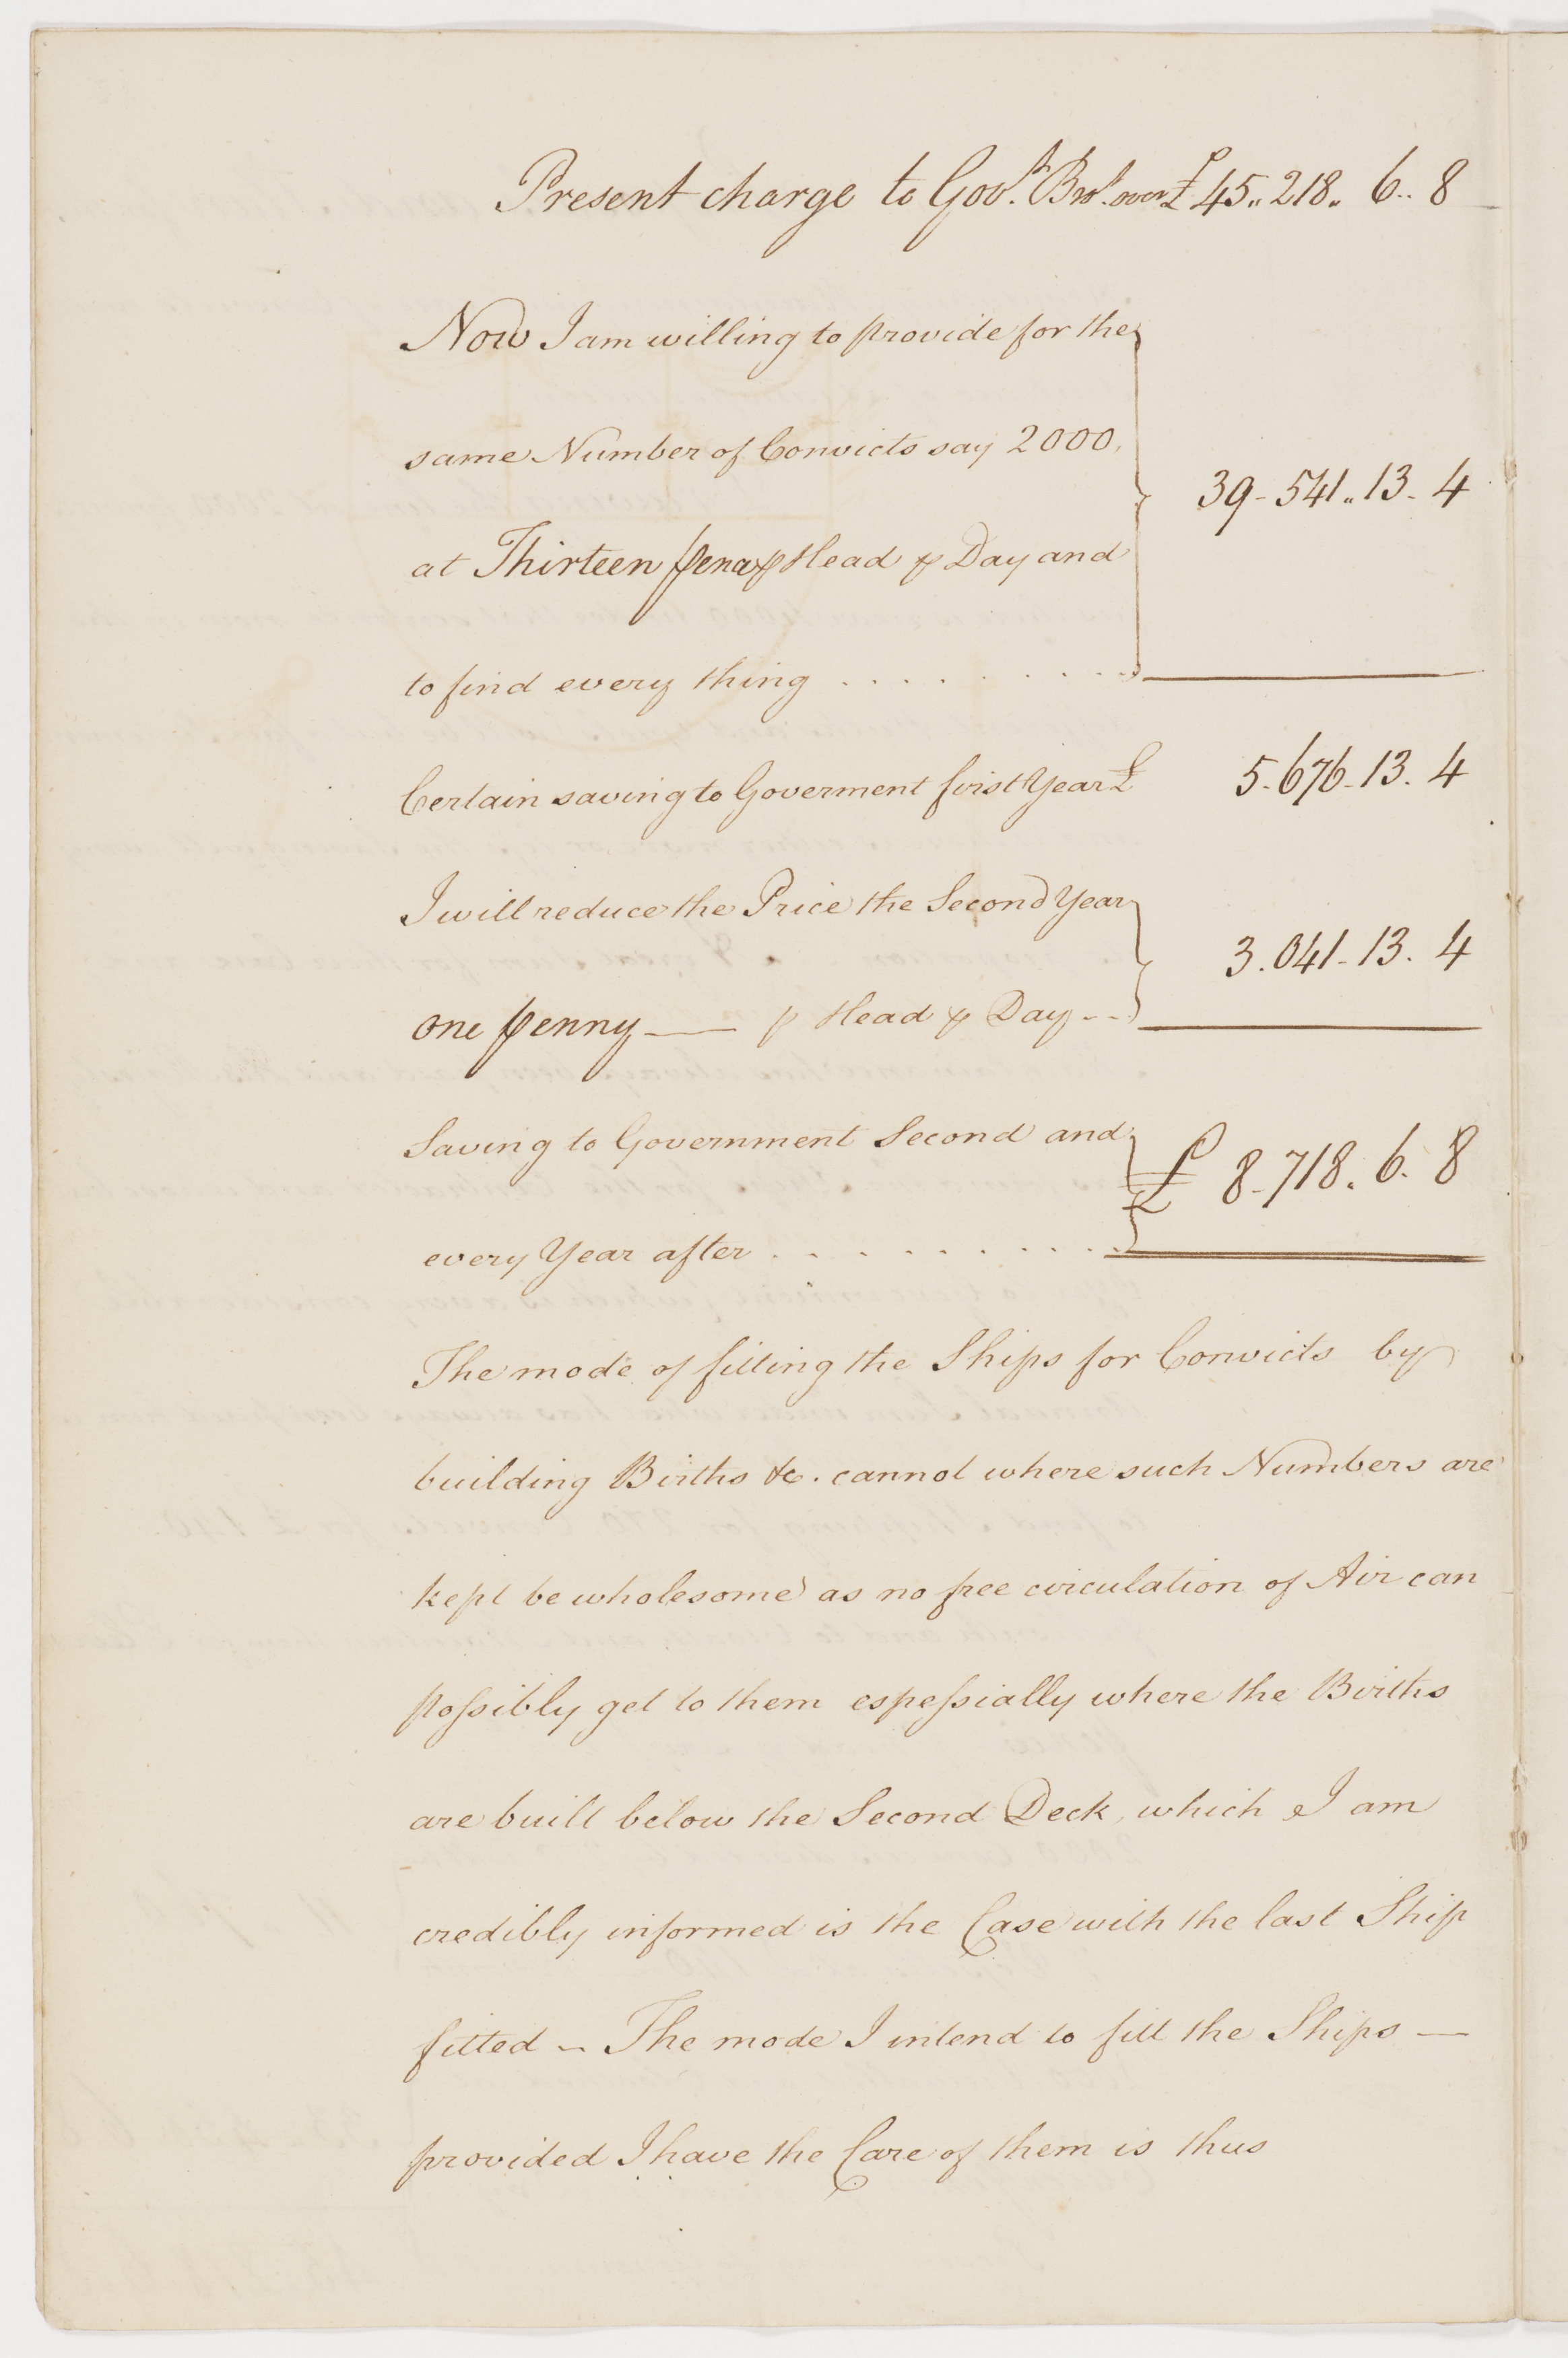 Present charge to Govt. Brot. over £ 45,, 218,, 6.. 8
Now I am willing to provide for the
same Number of Convicts say 2000,
39 - 541 ,, 13 - 4
at Thirteen pence ⅌ Head ⅌ Day and
to find every thing . . . . . . . . .
Certain saving to Goverment first Year £ 5 - 676 - 13 . 4
I will reduce the Price the Second Year
3 . 041 - 13 . 4
one penny — ⅌ Head ⅌ Day - -
Saving to Government Second and
£ 8 - 718 . 6 . 8
every Year after . . . . . . . . .
The mode of fitting the Ships for Convicts by
building Births &c. cannot where such Numbers are
kept be wholesome as no free circulation of Air can
poſsibly get to them espeſsially where the Births
are built below the Second Deck, which I am
credibly informed is the Case with the last Ship
fitted ~ The mode I intend to fitt the Ships —
provided I have the Care of them is thus